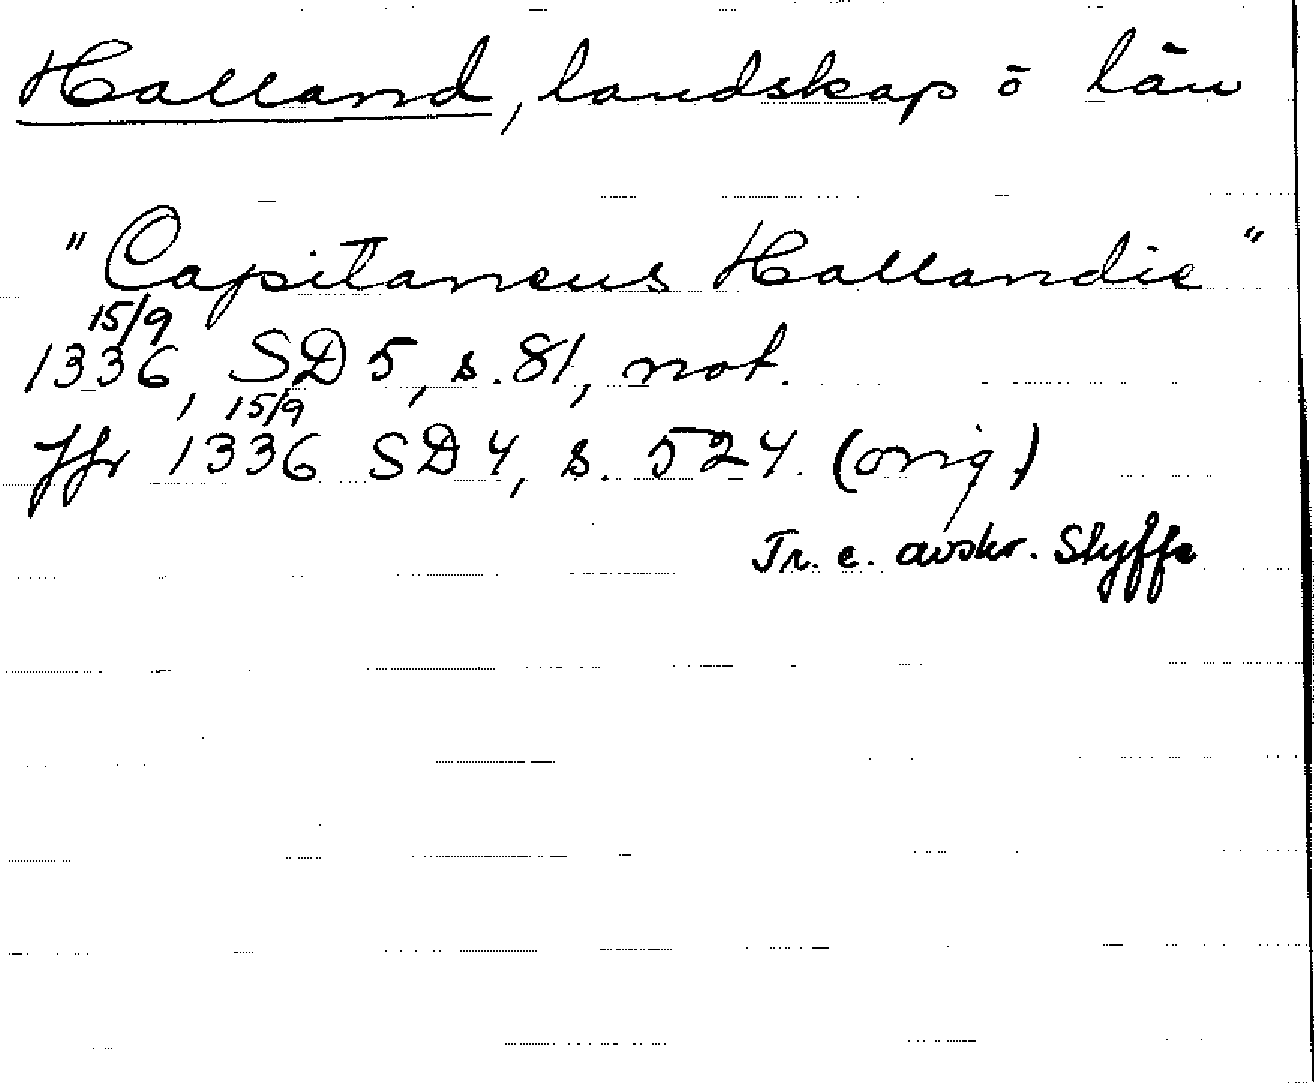 Halland, landskap o län
"Capitaneus Hallandie"
15/9
1336, SD 5, s. 81, not.
15/9
Jfr 1336 SD 4, s. 524. (orig.)
Tr. e. avskr. Styffe